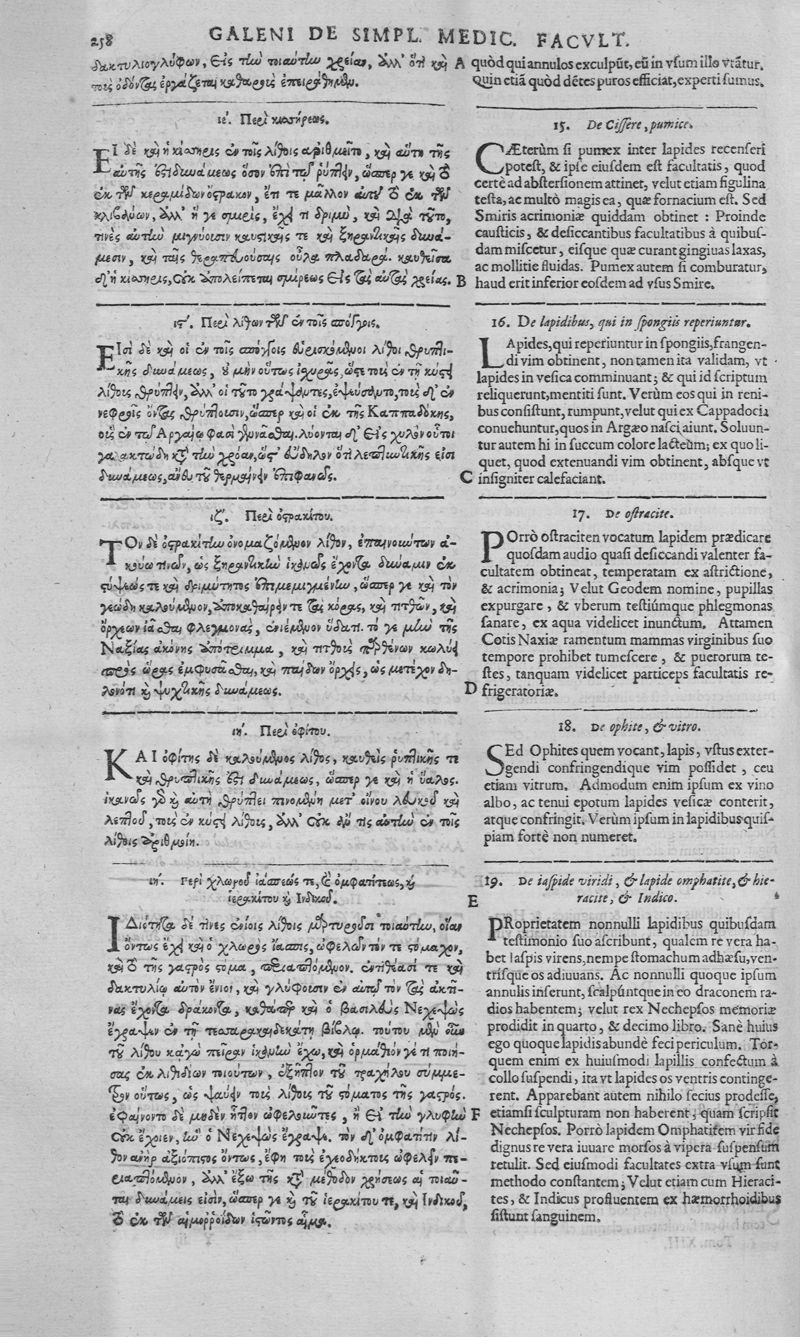 258 GALENI DE SIMPL. MEDIC. FACVLT.
δακτυλιογλύφων, εἰς τὴν τοιαύτην χρείαν, ἀλλ' ὅτι καὶ
τοὺς ὀδόντας ἐργάζεται καθαροὺς ἐπειράθημεν.
ιε'. Περὶ κισσήρεως.
ΕΙ δὲ καὶ ἡ κίσσηρις ἐν τοῖς λίθοις ἀριθμεῖτο, καὶ αὕτη τῆς
αὐτῆς ἐστι δυνάμεως ὅσον ἐπὶ τῷ ῥύπτειν, ὥσπερ γε καὶ τὸ
ἐκ τῶν κεραμίδων ὄστρακον, ἔτι τε μᾶλλον αὐτῶν τὸ ἐκ τῶν
κλιβάνων, ἀλλ' ἥ γε σμύρις, ἔχει τι δριμύ, καὶ διὰ τοῦτο,
τινὲς αὐτὴν μιγνύουσιν καυστικαῖς τε καὶ ξηραντικαῖς δυνά-
μεσιν, καὶ ταῖς θεραπευούσαις οὖλα πλαδαρά. καυθεῖσα
δ' ἡ κίσσηρις, οὐκ ἀπολείπεται σμύρεως εἰς τὰς αὐτὰς χρείας.
ις'. Περὶ λίθων τῶν ἐν τοῖς σπόγγοις.
ΕΙσὶ δὲ καὶ οἱ ἐν τοῖς σπόγγοις εὑρισκόμενοι λίθοι θρυπτι-
κῆς δυνάμεως, οὐ μὴν οὕτως ἰσχυρᾶς, ὥστε τοὺς ἐν τῇ κύστει
λίθους θρύπτειν, ἀλλ' οἱ τοῦτο γράψαντες, ἐψεύσαντο, τοὺς δ' ἐν
νεφροῖς ὄντας θρύπτουσιν, ὥσπερ καὶ οἱ ἐκ τῆς Καππαδόκης,
οὓς ἐν τῷ Ἀργαίῳ φασὶ γεννᾶσθαι. λύονται δ' εἰς χυλὸν οὗτοι
γαλακτώδη κατὰ τὴν χρόαν, ὥστ' εὔδηλον ὅτι λεπτυντικῆς εἰσι
δυνάμεως, ἄνευ τοῦ θερμαίνειν ἐπιφανῶς.
ιζ'. Περὶ ὀστρακίτου.
ΤΟν δὲ ὀστρακίτην ὀνομαζόμενον λίθον, ἐπαινούντων ἀ-
κούω τινῶν, ὡς ξηραντικὴν ἱκανῶς ἔχοντα δύναμιν ἐκ
στύψεώς τε καὶ δριμύτητος ἐπιμεμιγμένην, ὥσπερ γε καὶ τὸν
γεώδη καλούμενον, ἀποκαθαίρειν τε τὰς κόρας, καὶ τιτθῶν, καὶ
ὄρχεων ἰᾶσθαι φλεγμονάς, ἐνιέμενον ὕδατι. τό γε μὴν τῆς
Ναξίας ἀκόνης ἀπότριμμα, καὶ τιτθοὺς παρθένων κωλύει
πρὸς ὥρας ἐμφυσᾶσθαι, καὶ παίδων ὄρχεις, ὡς μετέχον δη-
λονότι καὶ ψυκτικῆς δυνάμεως.
ιη'. Περὶ ὀφίτου.
ΚΑΙ ὀφίτης δὲ καλούμενος λίθος, καυθεὶς ῥυπτικῆς τε
καὶ θρυπτικῆς ἐστι δυνάμεως, ὥσπερ γε καὶ ἡ ὕαλος.
ἱκανῶς γὰρ καὶ αὐτὴ θρύπτει πινομένη μετ' οἴνου λευκοῦ καὶ
λεπτοῦ, τοὺς ἐν κύστει λίθους, ἀλλ' οὐκ ἄν τις αὐτὴν ἐν τοῖς
λίθοις ἀριθμοίη.
ιη'. Περὶ χλωροῦ ἰάσπεώς τε, καὶ ὀμφατίτεως, καὶ
ἱερακίτου καὶ Ἰνδικοῦ.
ΙΔιότητα δέ τινες ἐνίοις λίθοις μαρτυροῦσι τοιαύτην, οἵαν
ὄντως ἔχει καὶ ὁ χλωρὸς ἴασπις, ὠφελῶν τόν τε στόμαχον,
καὶ τὸ τῆς γαστρὸς στόμα, περιαπτόμενον. ἐντιθέασί τε καὶ
δακτυλίῳ αὐτὸν ἔνιοι, καὶ γλύφουσιν ἐν αὐτῷ τὸν τὰς ἀκτῖ-
νας ἔχοντα δράκοντα, καθάπερ καὶ ὁ βασιλεὺς Νεχεψὼς
ἔγραψεν ἐν τῇ τεσσαρακαιδεκάτῃ βίβλῳ. τούτου μὲν οὖν
τοῦ λίθου κἀγὼ πεῖραν ἱκανὴν ἔχω, καὶ ὁρμάθιόν γέ τι ποιή-
σας ἐκ λιθιδίων τοιούτων, ἐξῆπτον τοῦ τραχήλου σύμμε-
τρον οὕτως, ὡς ψαύειν τοὺς λίθους τοῦ στόματος τῆς γαστρός.
ἐφαίνοντο δὲ μηδὲν ἧττον ὠφελοῦντες, ἢ εἰ τὴν γλυφὴν
οὐκ ἔχοιεν, ἣν ὁ Νεχεψὼς ἔγραψε. τὸν δ' ὀμφατίτην λί-
θον ἀνὴρ ἀξιόπιστος ὄντως, ἔφη τοὺς ἐχεοδήκτους ὠφελεῖν πε-
ριαπτόμενον, ἀλλ' ἔξω τῆς κατὰ μέθοδον χρήσεως αἱ τοιαῦ-
ται δυνάμεις εἰσίν, ὥσπερ γε καὶ τοῦ ἱερακίτου τε, καὶ Ἰνδικοῦ,
τὸ ἐκ τῶν αἱμορροΐδων ἱστῶντος αἷμα.
A quòd qui annulos exculpũt, eũ in vsum illo vtãtur.
Quin etiã quòd dẽtes puros efficiat, experti sumus.
15. De Cissere, pumice.
CÆterùm si pumex inter lapides recenseri
potest, & ipse eiusdem est facultatis, quod
certè ad abstersionem attinet, velut etiam figulina
testa, ac multò magis ea, quæ fornacium est. Sed
Smiris acrimoniæ quiddam obtinet : Proinde
causticis, & desiccantibus facultatibus à quibus-
dam miscetur, eisque quæ curant gingiuas laxas,
ac mollitie fluidas. Pumex autem si comburatur,
B haud erit inferior eosdem ad vsus Smire.
16. De lapidibus, qui in spongiis reperiuntur.
LApides, qui reperiuntur in spongiis, frangen-
di vim obtinent, non tamen ita validam, vt
lapides in vesica comminuant; & qui id scriptum
reliquerunt, mentiti sunt. Verùm eos qui in reni-
bus consistunt, rumpunt, velut qui ex Cappadocia
conuehuntur, quos in Argæo nasci aiunt. Soluun-
tur autem hi in succum colore lacteũm; ex quo li-
quet, quod extenuandi vim obtinent, absque vt
C insigniter calefaciant.
17. De ostracite.
POrrò ostraciten vocatum lapidem prædicare
quosdam audio quasi desiccandi valenter fa-
cultatem obtineat, temperatam ex astrictione,
& acrimonia; Velut Geodem nomine, pupillas
expurgare, & vberum testiúmque phlegmonas
sanare, ex aqua videlicet inunctum. Attamen
Cotis Naxiæ ramentum mammas virginibus suo
tempore prohibet tumescere, & puerorum te-
stes, tanquam videlicet particeps facultatis re-
D frigeratoriæ.
18. De ophite, & vitro.
SEd Ophites quem vocant, lapis, vstus exter-
gendi confringendique vim possidet, ceu
etiam vitrum. Admodum enim ipsum ex vino
albo, ac tenui epotum lapides vesicæ conterit,
atque confringit. Verùm ipsum in lapidibus quis-
piam fortè non numeret.
19. De iaspide viridi, & lapide omphatite, & hie-
E racite, & Indico.
PRoprietatem nonnulli lapidibus quibusdam
testimonio suo ascribunt, qualem re vera ha-
bet Iaspis virens, nempe stomachum adhæsu, ven-
trísque os adiuuans. Ac nonnulli quoque ipsum
annulis inserunt, scalpúntque in eo draconem ra-
dios habentem; velut rex Nechepsos memoriæ
prodidit in quarto, & decimo libro. Sanè huius
ego quoque lapidis abundè feci periculum. Tor-
quem enim ex huiusmodi lapillis confectum à
collo suspendi, ita vt lapides os ventris continge-
rent. Apparebant autem nihilo secius prodesse,
F etiamsi sculpturam non haberent, quam scripsit
Nechepsos. Porrò lapidem Omphatitem vir fide
dignus re vera iuuare morsos à vipera suspensum
retulit. Sed eiusmodi facultates extra vsum sunt
methodo constantem; Velut etiam cum Hieraci-
tes, & Indicus profluentem ex hæmorrhoidibus
sistunt sanguinem.